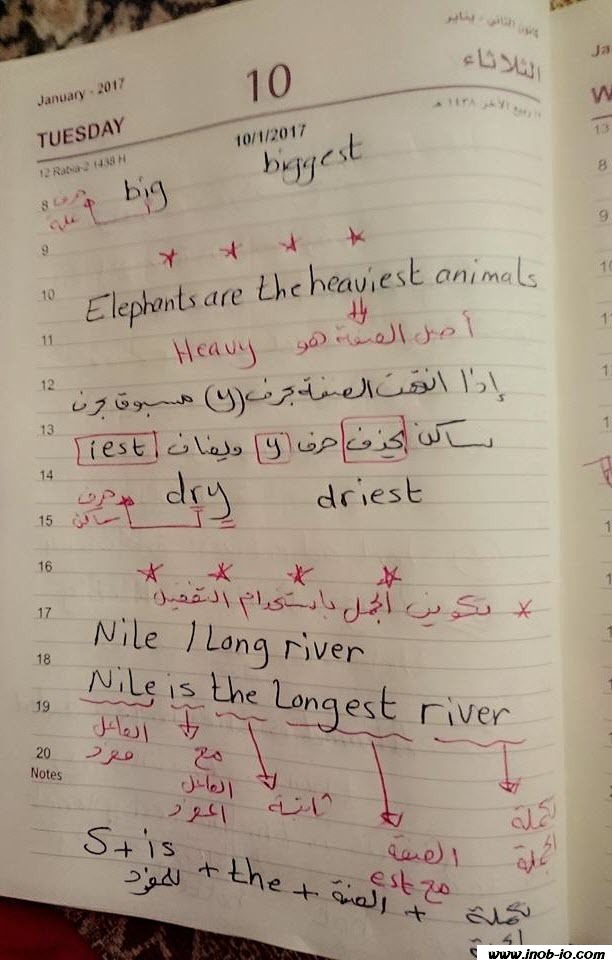 كانون الثاني - يناير
الثلاثاء
January - 2017
10
TUESDAY
10/1/2017
12 Rabia-2 1438 H
١٢ ربيع الآخر ١٤٣٨ هـ
8 حرف علة big biggest
9
10 Elephants are the heaviest animals
11 أصل الصفة هو Heavy
12 إذا انتهت الصفة بحرف (y) مسبوق بحرف
13 ساكن يحذف حرف y ويضاف iest
14 حرف ساكن dry driest
15
16
* تكوين الجمل باستخدام التفضيل
17 Nile / Long river
18
Nile is the Longest river
19
الفاعل مفرد
مع الفاعل المفرد
ثابتة
الصفة مع est
تكملة الجملة
20
Notes
S + is للمفرد + the + الصفة + تكملة
Ja
W
13
8
9
www.inob-io.com